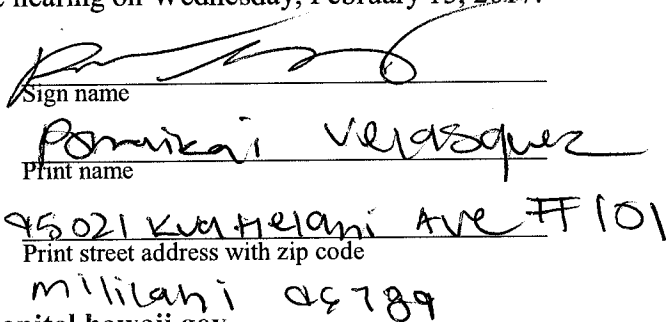 hearing on Wednesday, February 15, 2017.
Sign name
Pomaikai Velasquez
Print name
95021 Kuahelani Ave #101
Print street address with zip code
Mililani 96789
capitol.hawaii.gov